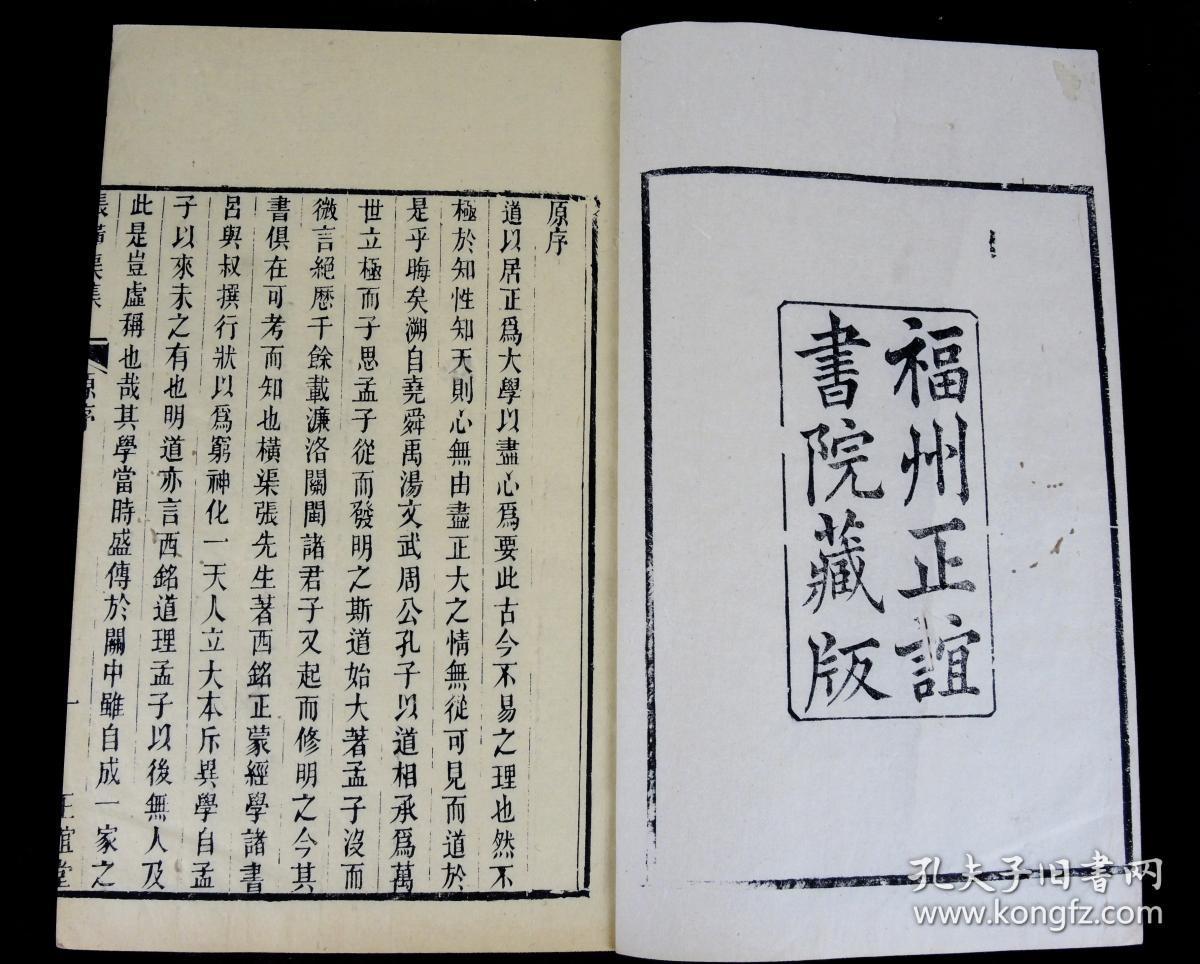 福州正誼
書院藏版
原序
道以居正爲大學以盡心爲要此古今不易之理也然不
極於知性知天則心無由盡正大之情無從可見而道於
是乎晦矣溯自堯舜禹湯文武周公孔子以道相承爲萬
世立極而子思孟子從而發明之斯道始大著孟子沒而
微言絕歷千餘載濂洛關閩諸君子又起而修明之今其
書俱在可考而知也橫渠張先生著西銘正蒙經學諸書
呂與叔撰行狀以爲窮神化一天人立大本斥異學自孟
子以來未之有也明道亦言西銘道理孟子以後無人及
此是豈虛稱也哉其學當時盛傳於關中雖自成一家之
張橫渠集 原序 一 正誼堂
孔夫子旧书网
www.kongfz.com